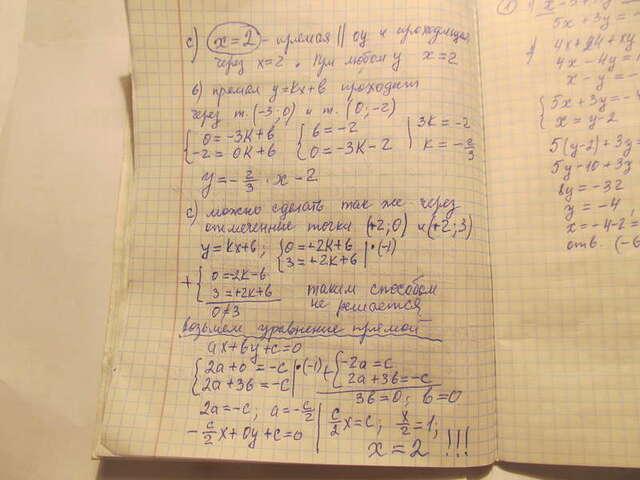 c) x=2 - прямая || оу и проходящая
через x=2. При любом у x=2
в) прямая y=kx+b проходит
через т. (-3; 0) и т. (0; -2)
{0=-3k+b {b=-2 3k=-2
{-2=0k+b {0=-3k-2 k=-2/3
y=-2/3·x-2
c) можно сделать так же через
отмеченные точки (+2; 0) и (+2; 3)
y=kx+b; {0=+2k+b |·(-1)
{3=+2k+b
+{0=-2k-b
{3=+2k+b таким способом
0≠3 не решается
возьмем уравнение прямой
ax+by+c=0
{2a+0=-c |·(-1) +{-2a=c
{2a+3b=-c {2a+3b=-c
3b=0; b=0
2a=-c; a=-c/2 | c/2x=c; x/2=1;
-c/2x+0y+c=0 | x=2 !!!
5x+3y=-
4x+
4x-4y=
x-y=-
{5x+3y=-4
{x=y-2
5(y-2)+3y=
5y-10+3y
8y=-32
y=-4
x=-4-2=
отв. (-6